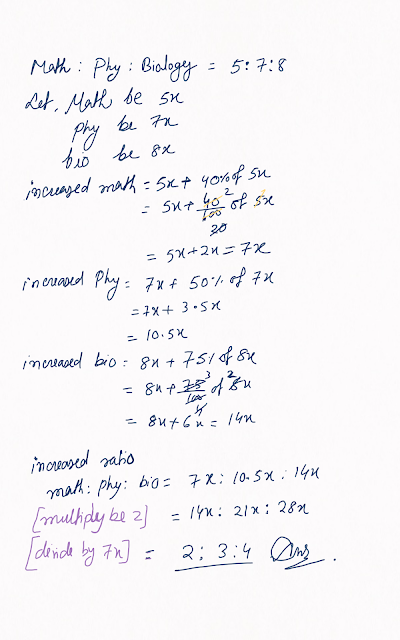 Math : Phy : Biology = 5:7:8
Let, Math be 5x
Phy be 7x
bio be 8x
increased math = 5x + 40% of 5x
= 5x + 40/100 of 5x
2
20
= 5x + 2x = 7x
increased Phy = 7x + 50% of 7x
= 7x + 3.5x
= 10.5x
increased bio = 8x + 75% of 8x
= 8x + 75/100 of 8x
3 2
4
= 8x + 6x = 14x
increased ratio
math : phy : bio = 7x : 10.5x : 14x
[multiply be 2] = 14x : 21x : 28x
[devide by 7x] = 2 : 3 : 4 Ans.